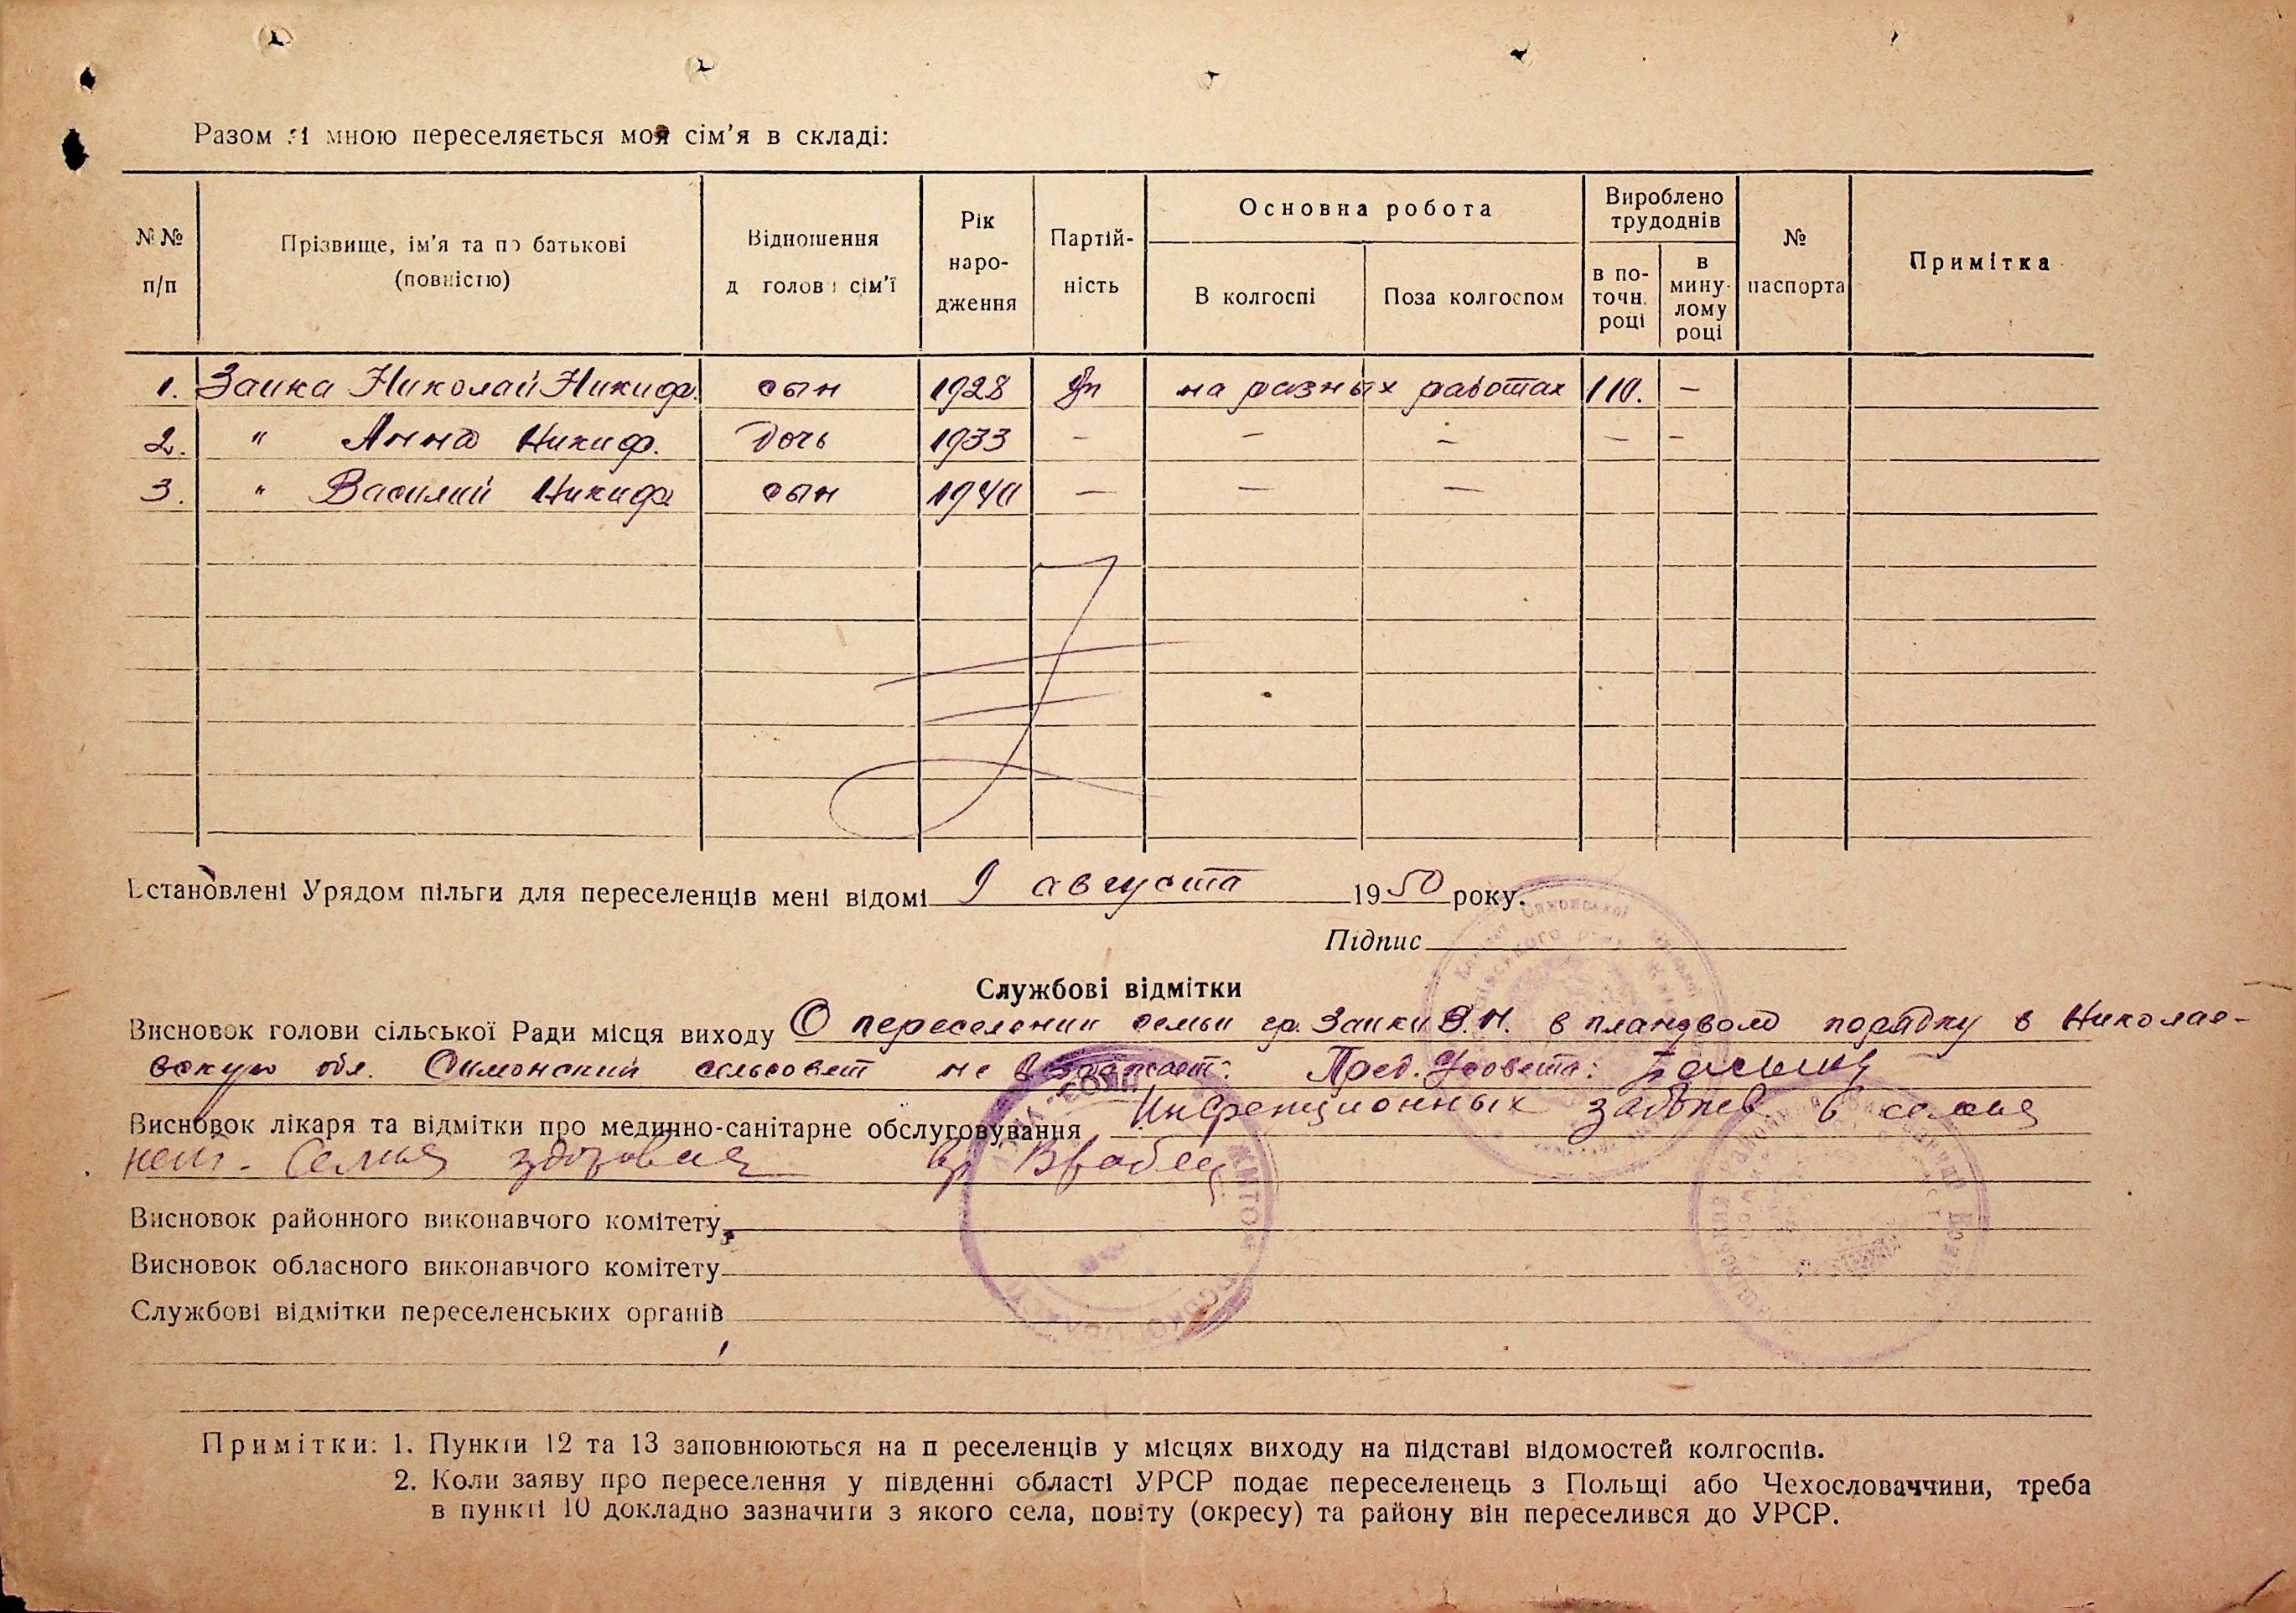 Разом зі мною переселяється моя сім'я в складі:
№№ п/п
Прізвище, ім'я та по батькові (повністю)
Відношення д голови сім'ї
Рік народження
Партійність
Основна робота
В колгоспі
Поза колгоспом
Вироблено трудоднів
в поточн. році
в минулому році
№ паспорта
Примітка
1. Заика Николай Никиф. сын 1928 на разных работах 110. –
2. " Анна Никиф. дочь 1933 – – – – –
3. " Василий Никиф сын 1940 – – –
Встановлені Урядом пільги для переселенців мені відомі 9 августа 1950 року.
Підпис
Службові відмітки
Висновок голови сільської Ради місця виходу О переселении семьи гр. Заики В.Н. в плановом порядку в Николаев-
вскую обл. Симонский сельсовет не возражает: Пред. с/совета:
Висновок лікаря та відмітки про медично-санітарне обслуговування Инфекционных заболев. в семье
нет. Семья здоровая вр
Висновок районного виконавчого комітету
Висновок обласного виконавчого комітету
Службові відмітки переселенських органів
Примітки: 1. Пункти 12 та 13 заповнюються на п реселенців у місцях виходу на підставі відомостей колгоспів.
2. Коли заяву про переселення у південні області УРСР подає переселенець з Польщі або Чехословаччини, треба
в пункті 10 докладно зазначити з якого села, повіту (окресу) та району він переселився до УРСР.